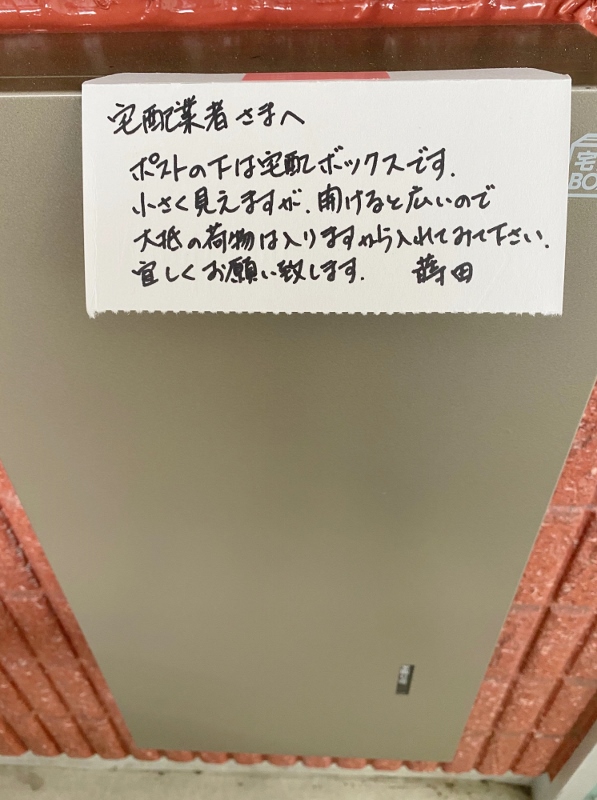 宅配業者さまへ
ポストの下は宅配ボックスです.
小さく見えますが.開けると広いので
大抵の荷物は入りますから入れてみて下さい.
宜しくお願い致します. 蒔田
宅
BO